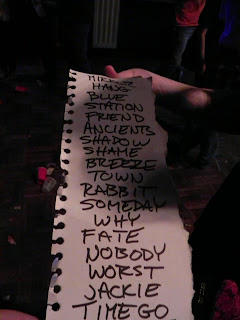 HANG
BLUE
STATION
FRIEND
ANCIENTS
SHADOW
SHAME
BREEZE
TOWN
RABBIT
SOMEDAY
WHY
FATE
NOBODY
WORST
JACKIE
TIMEGO